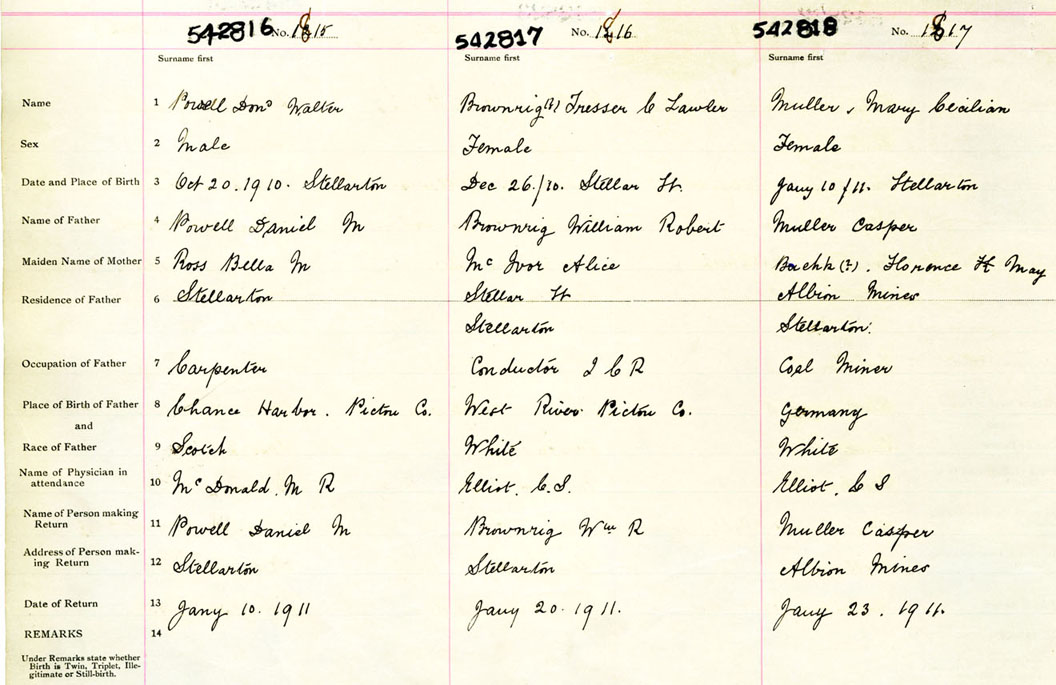 542816 No. 1815 542817 No. 1816 542818 No. 1817
Surname first Surname first Surname first
Name 1 Powell Dond Walter Brownrig(?) Tresser C Lawler Muller, Mary Cecilian
Sex 2 Male Female Female
Date and Place of Birth 3 Oct 20.1910. Stellarton Dec 26./10. Stellar St. Jany 10/11. Stellarton
Name of Father 4 Powell Daniel M Brownrig William Robert Muller Casper
Maiden Name of Mother 5 Ross Bella M Mc Ivor Alice (?). Florence May
Residence of Father 6 Stellarton Stellar St Albion Mines
Stellarton Stellarton.
Occupation of Father 7 Carpenter Conductor I C R Coal Miner
Place of Birth of Father 8 Chance Harbor. Pictou Co. West River Pictou Co. Germany
and
Race of Father 9 Scotch White White
Name of Physician in
attendance 10 Mc Donald. M R Elliot. C.S. Elliot. C S
Name of Person making
Return 11 Powell Daniel M Brownrig Wm R Muller Casper
Address of Person mak-
ing Return 12 Stellarton Stellarton Albion Mines
Date of Return 13 Jany 10. 1911 Jany 20. 1911. Jany 23. 1911.
REMARKS 14
Under Remarks state whether
Birth is Twin, Triplet, Ille-
gitimate or Still-birth.